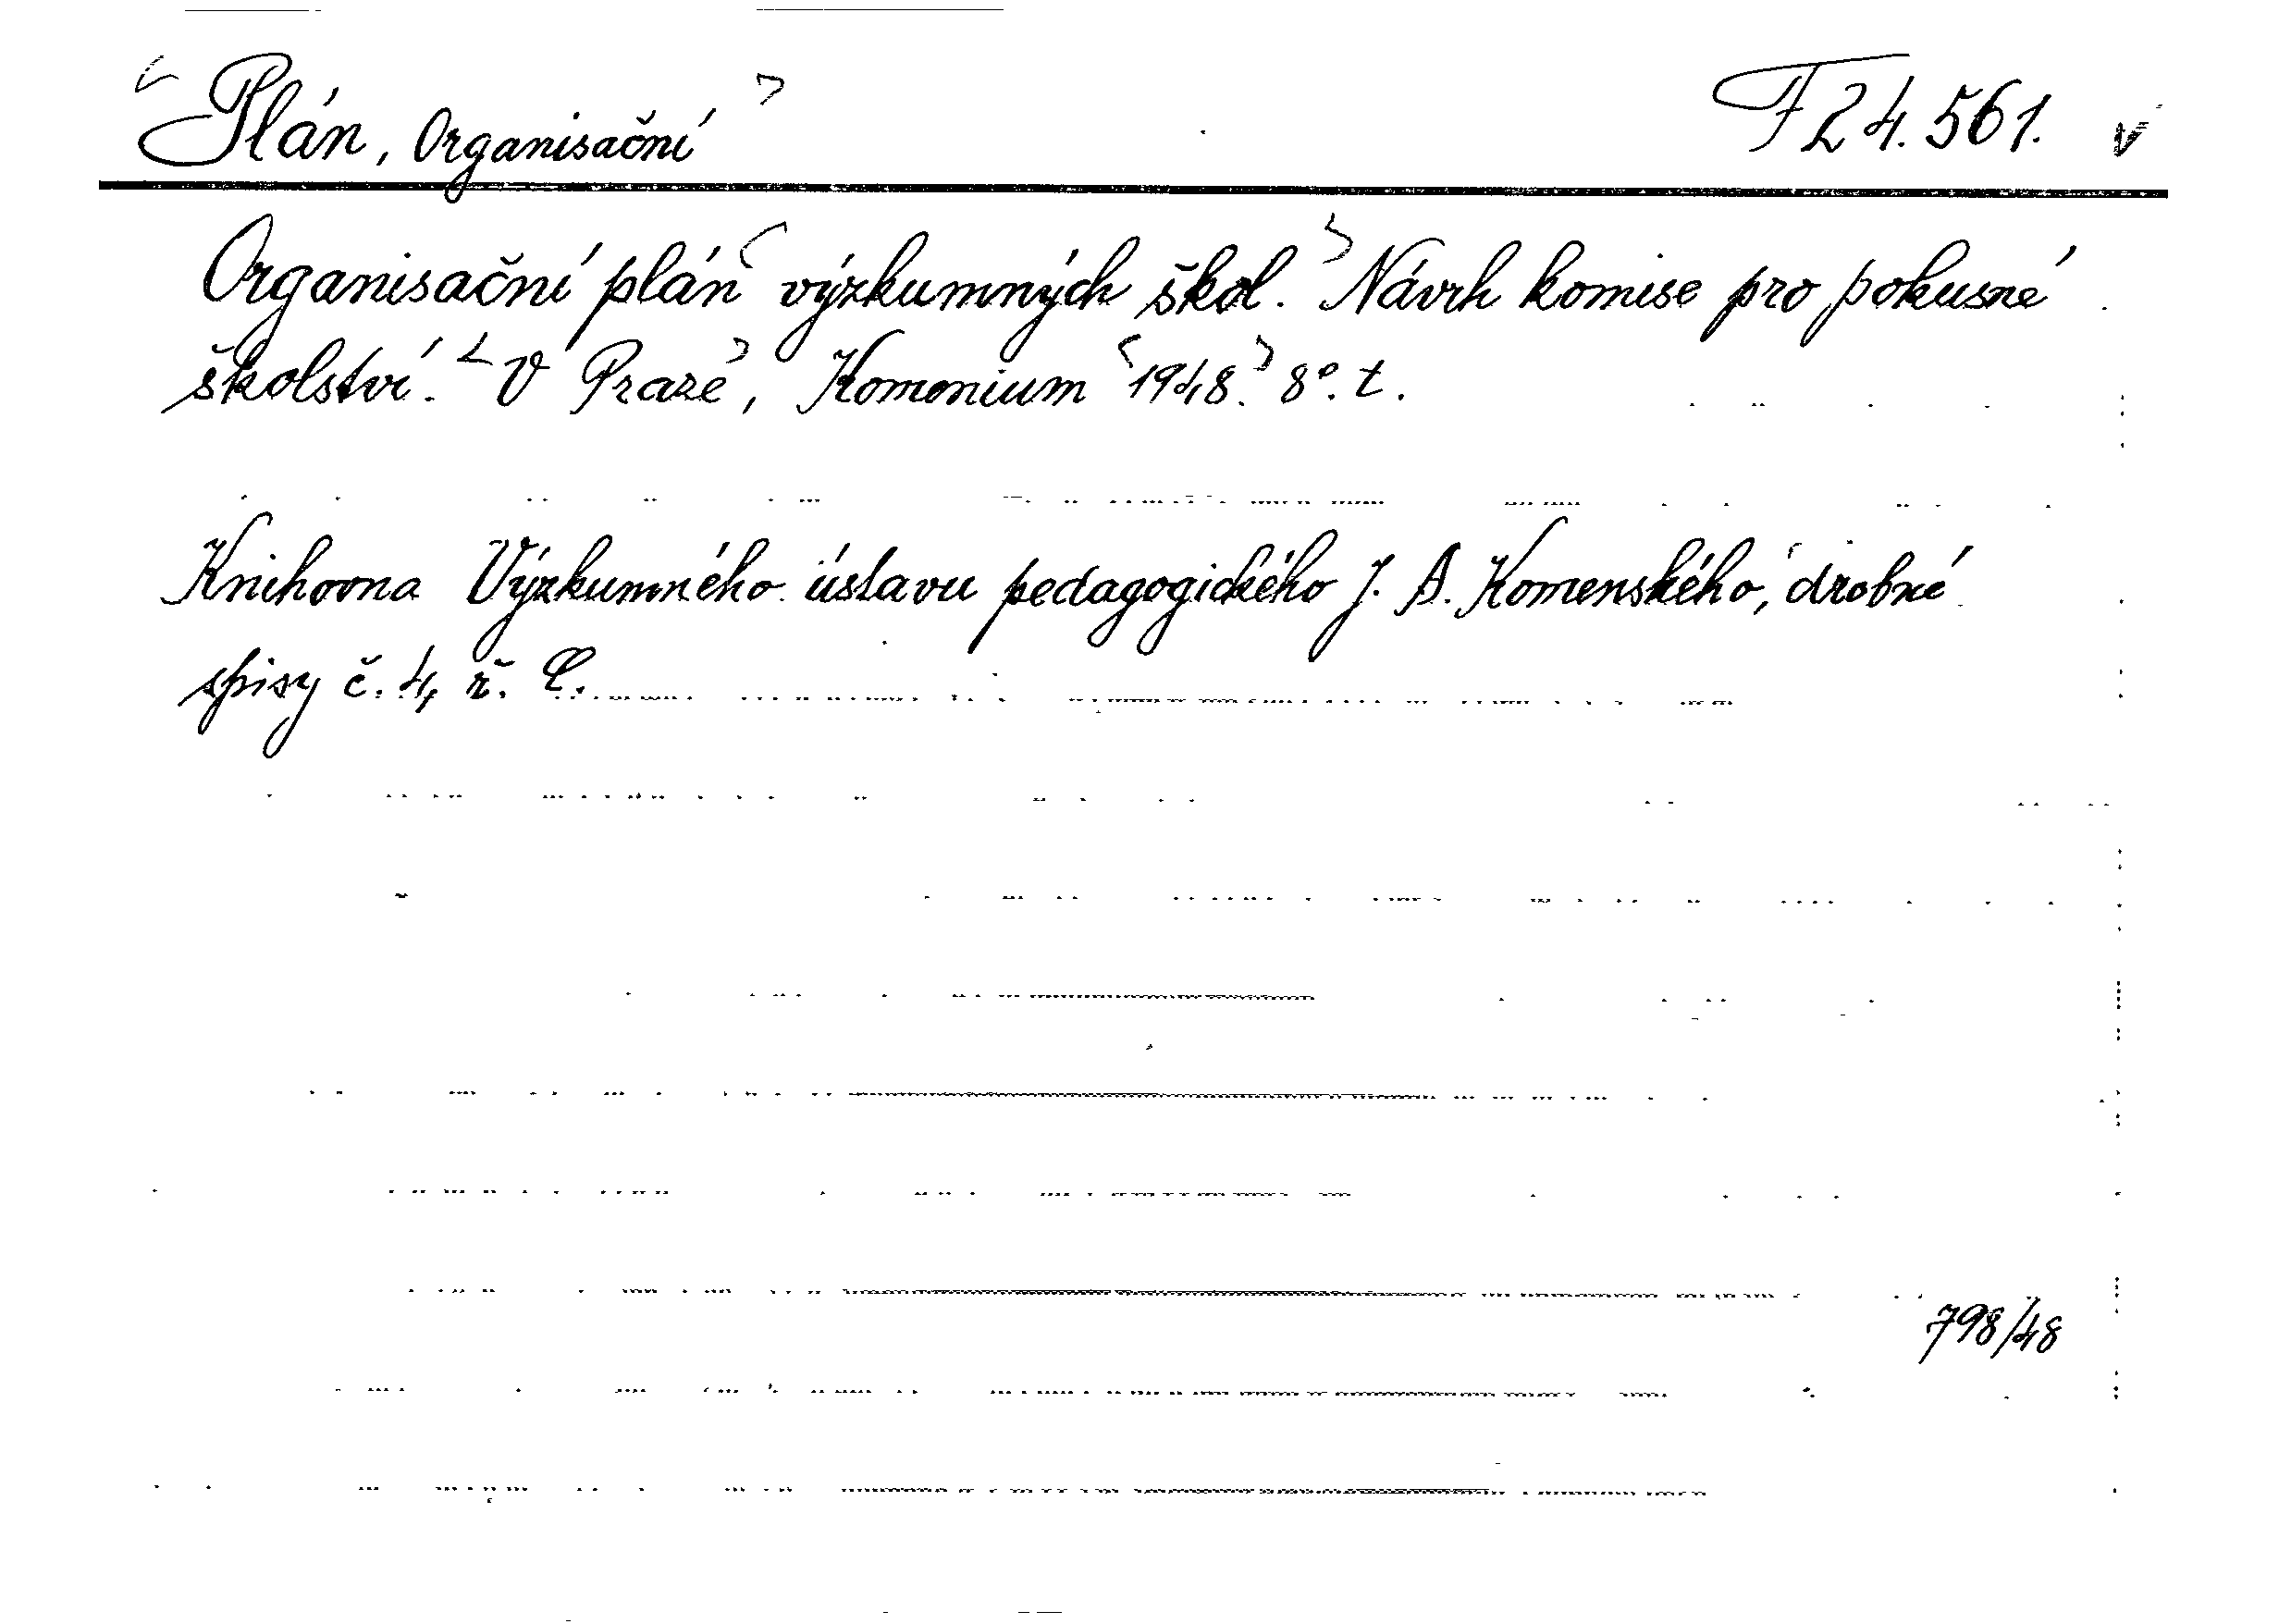 Plán, Organisační F 24.561. v
Organisační plán výzkumných škol. Návrh komise pro pokusné
školství. V Praze, Komenium 1948. 8°. t.
Knihovna Výzkumného ústavu pedagogického J. A. Komenského, drobné
spisy č. 4, ř. C.
798/48